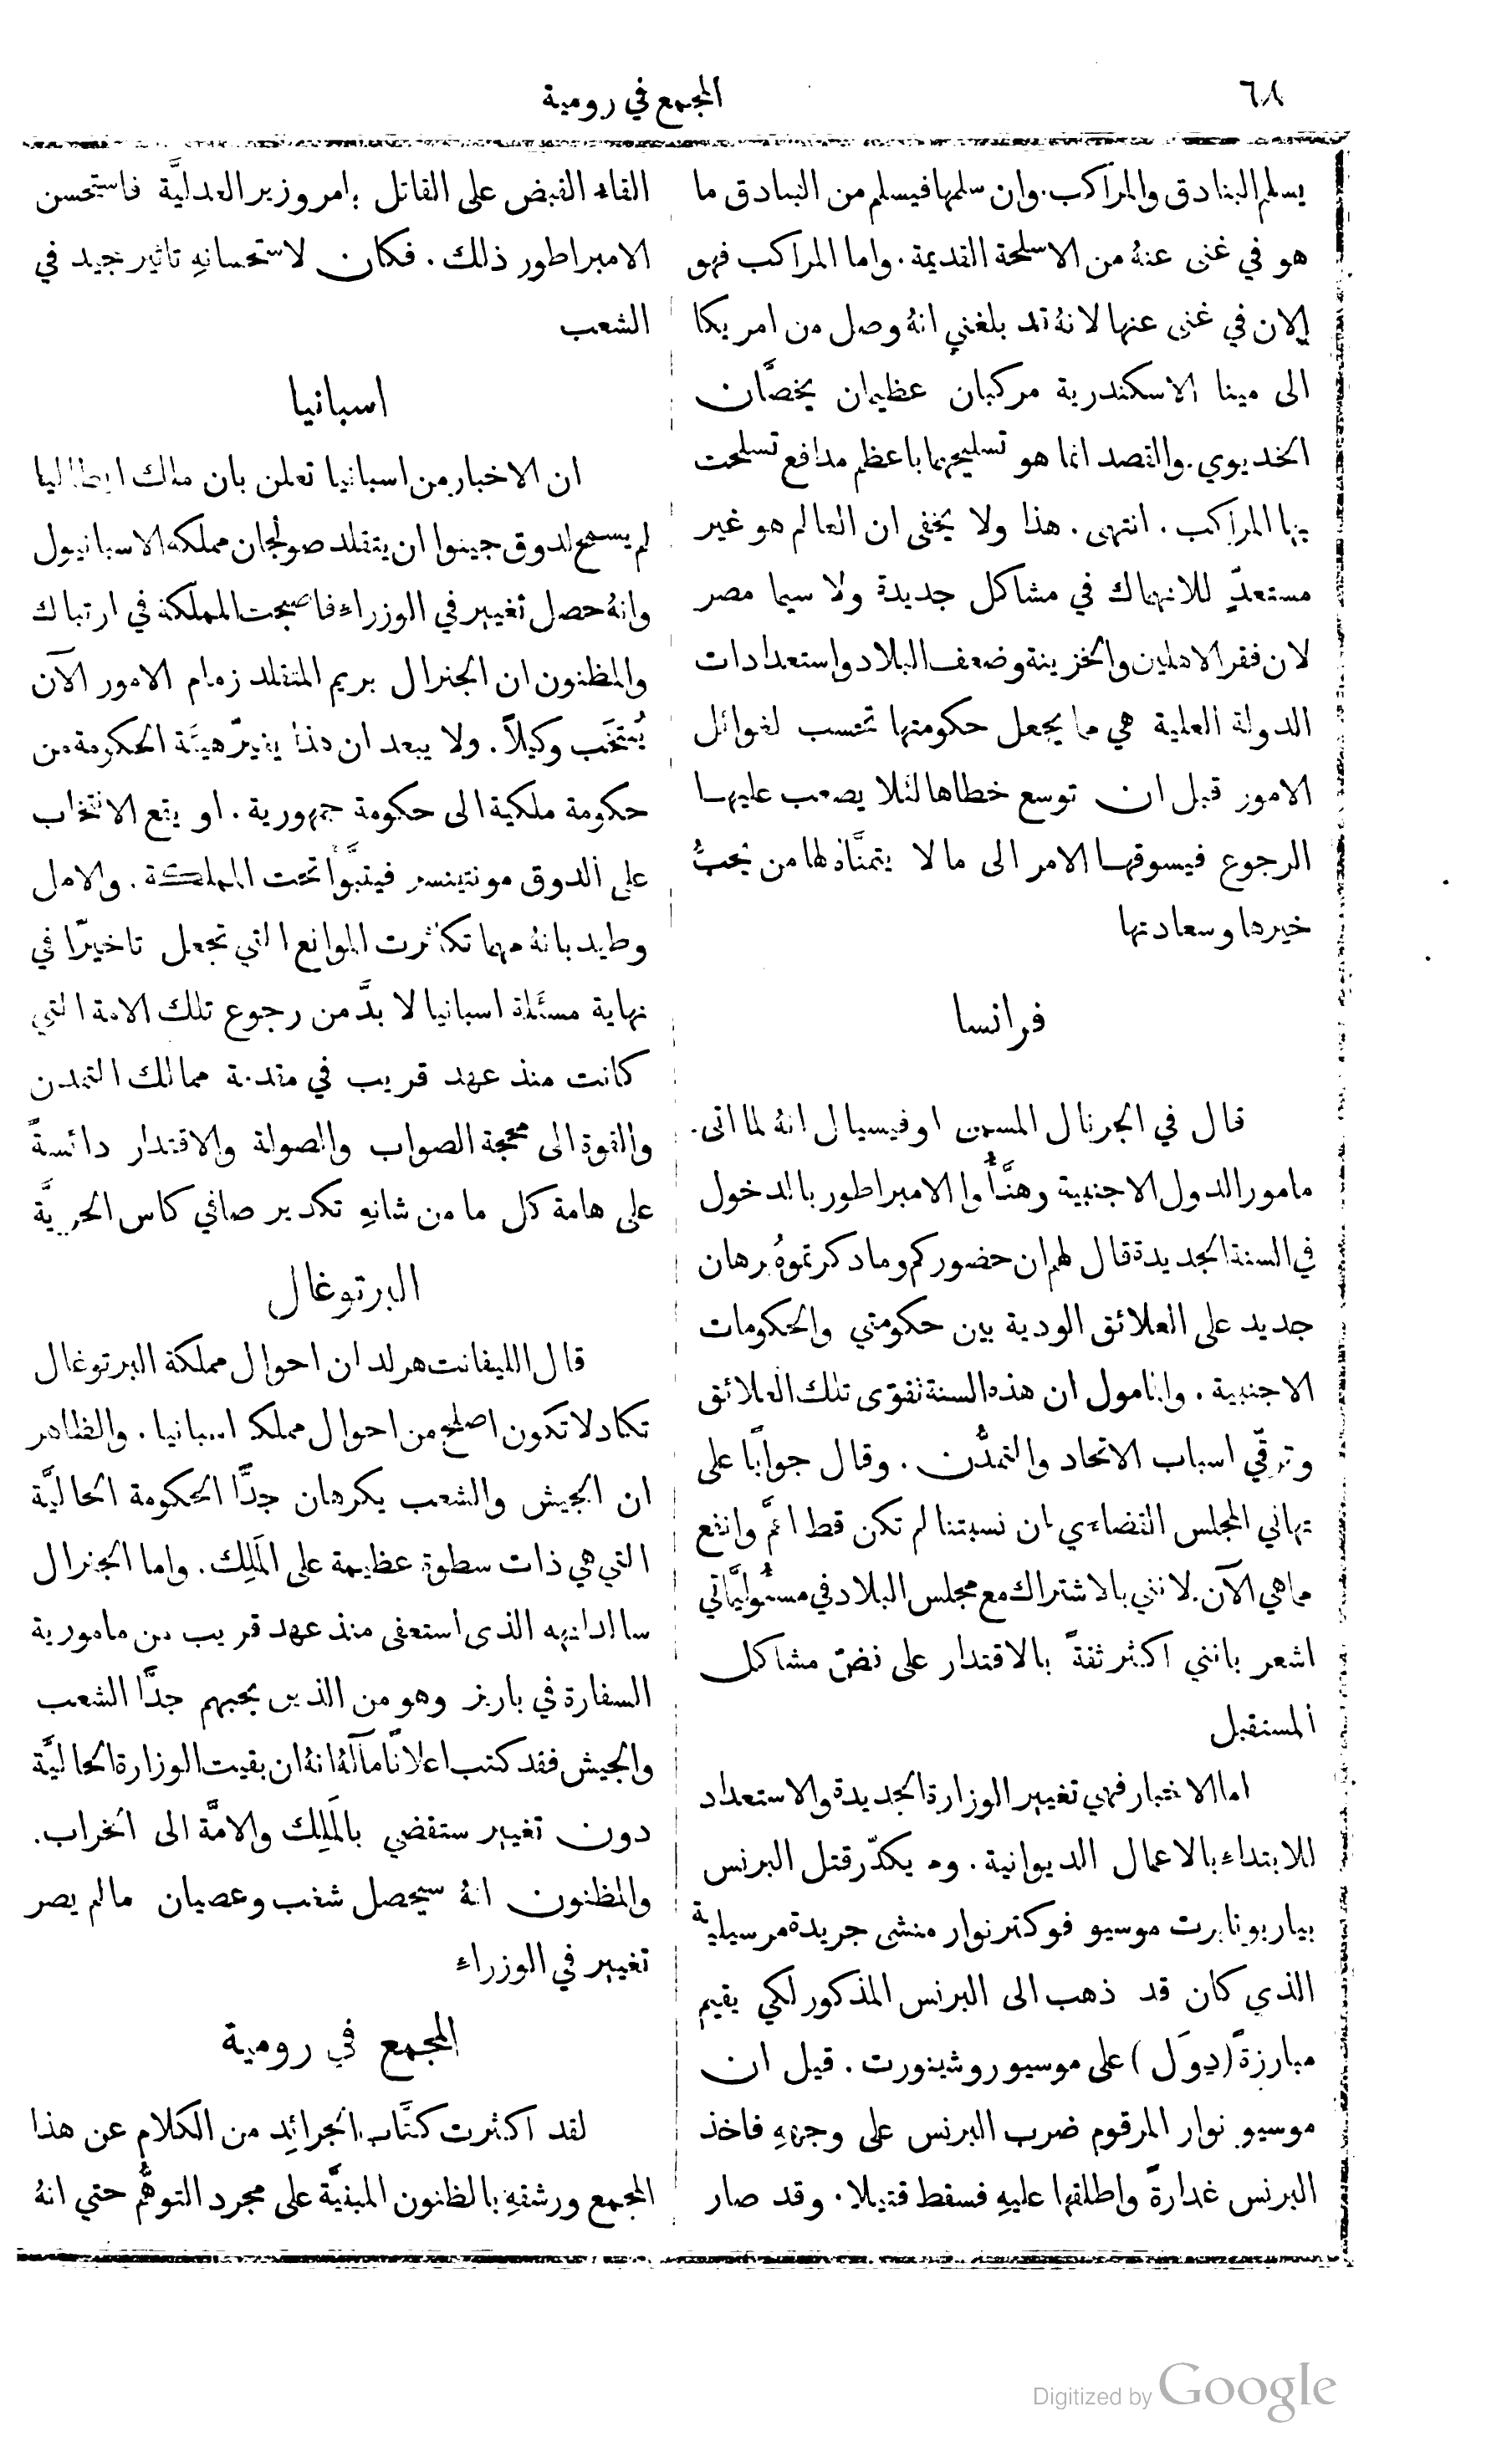 ٦٨
المجمع في رومية
يسلم البنادق والمراكب. وان سلمها فيسلم من البنادق ما
هو في غنى عنهُ من الاسلحة القديمة. واما المراكب فهو
الان في غنى عنها لانهُ قد بلغني انهُ وصل من امريكا
الى مينا الاسكندرية مركبان عظيمان يخصَّان
الخديوي. والقصد انما هو تسليحهما باعظم مدافع تسلحت
بها المراكب. انتهى. هذا ولا يخفى ان العالم هو غير
مستعدٍّ للانهماك في مشاكل جديدة ولا سيما مصر
لان فقر الاهلين والخزينة وضعف البلاد واستعدادات
الدولة العلية هي ما يجعل حكومتها تحتسب لغوائل
الامور قبل ان توسع خطاها لئلا يصعب عليها
الرجوع فيسوقها الامر الى ما لا يتمنَّاهُ لها من يحبُّ
خيرها وسعادتها
فرانسا
قال في الجرنال المسمى اوفيسيال انهُ لما اتى
مامورا الدول الاجنبية وهنَّأُوا الامبراطور بالدخول
في السنة الجديدة قال لهم ان حضوركم وما ذكرتموهُ برهان
جديد على العلائق الودية بين حكومتي والحكومات
الاجنبية. والمامول ان هذه السنة تقوّى تلك العلائق
وترقّي اسباب الاتحاد والتمدُّن. وقال جوابًا على
تهاني المجلس القضاءي ان نسبتنا لم تكن قط اعمَّ وانفع
مما هي الآن. لانني بالاشتراك مع مجلس البلاد في مسئُوليَّاتي
اشعر بانني اكثر ثقةً بالاقتدار على فضّ مشاكل
المستقبل
اما الاخبار فهي تغيير الوزارة الجديدة والاستعداد
للابتداء بالاعمال الديوانية. ومما يكدّر قتل البرنس
بيار بونابرت موسيو فوكتر نوار منشى جريدة مرسيلية
الذي كان قد ذهب الى البرنس المذكور لكي يقيم
مبارزةً (دِوَل) على موسيو روشينورت. قيل ان
موسيو نوار المرقوم ضرب البرنس على وجههِ فاخذ
البرنس غدارةً واطلقها عليهِ فسقط قتيلا. وقد صار
القاء القبض على القاتل بامر وزير العدليَّة فاستحسن
الامبراطور ذلك. فكان لاستحسانهِ تاثير جيد في
الشعب
اسبانيا
ان الاخبار من اسبانيا تعلن بان ملك ايطاليا
لم يسمح لدوق جينوا ان يتقلد صولجان مملكة الاسبانيول
وانهُ حصل تغيير في الوزراء فاصبحت المملكة في ارتباك
والمظنون ان الجنرال بريم المتقلد زمام الامور الآن
يُنتَخَب وكيلاً. ولا يبعد ان هذا يغيّر هيئَة الحكومة من
حكومة ملكية الى حكومة جمهورية. او يقع الانتخاب
على الدوق مونتينسر فيتبوَّأ تحت المملكة. والامل
وطيد بانهُ مهما تكاثرت الموانع التي تجعل تاخيرًا في
نهاية مسئَلة اسبانيا لا بدَّ من رجوع تلك الامة التي
كانت منذ عهد قريب في مقدمة ممالك التمدن
والقوة الى محجة الصواب والصولة والاقتدار دائسةً
على هامة كل ما من شانهِ تكدير صافي كاس الحريَّة
البرتوغال
قال الليفانت هرلد ان احوال مملكة البرتوغال
تكاد لا تكون اصلح من احوال مملكة اسبانيا. والظاهر
ان الجيش والشعب يكرهان جدًّا الحكومة الحاليَّة
التي هي ذات سطوة عظيمة على المَلِك. واما الجنرال
سالدانهه الذى استعفى منذ عهد قريب من مامورية
السفارة في باريز وهو من الذين يحبهم جدًّا الشعب
والجيش فقد كتب اعلانًا مآلهُ انهُ ان بقيت الوزارة الحاليَّة
دون تغيير ستفضي بالمَلِك والامَّة الى الخراب.
والمظنون انهُ سيحصل شغب وعصيان ما لم يصر
تغيير في الوزراء
المجمع في رومية
لقد اكثرت كتَّاب الجرائِد من الكلام عن هذا
المجمع ورشقهِ بالظنون المبنيَّة على مجرد التوهُّم حتي انهُ
Digitized by Google